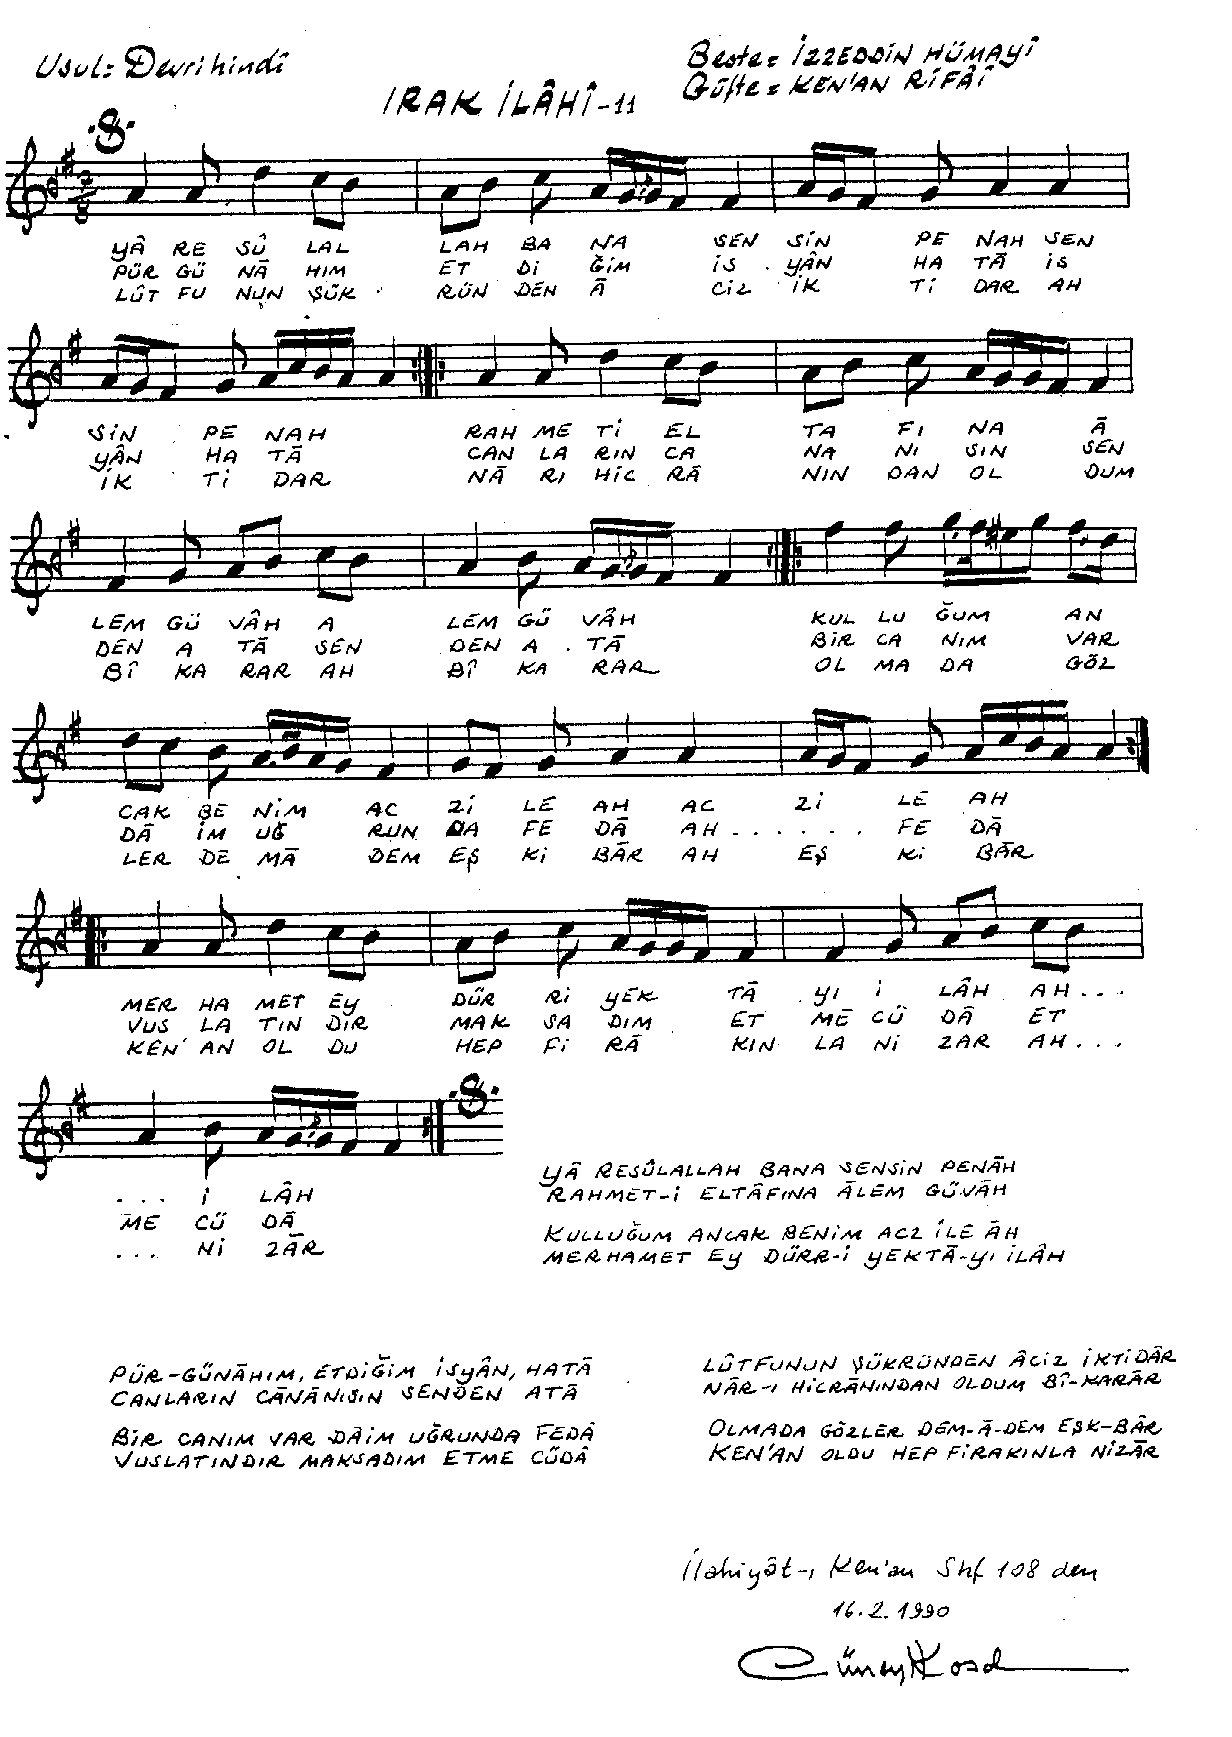 Usul: Devrihindî
Beste: İZZEDDİN HÜMAYÎ
Güfte: KEN'AN RİFÂÎ
IRAK İLÂHÎ-11
7/8
YÂ RE SÛ LAL LAH BA NA SEN SİN PE NAH SEN
PÜR GÜ NÂ HIM ET Dİ ĞİM İS YÂN HA TÂ İS
LÛT FU NUN ŞÜK RÜN DEN Â CİZ İK Tİ DAR AH
SİN PE NAH RAH ME Tİ EL TA FI NA Â
YÂN HA TÂ CAN LA RIN CA NA NI SIN SEN
İK Tİ DAR NÂ RI HİC RÂ NIN DAN OL DUM
LEM GÜ VÂH A LEM GÜ VÂH KUL LU ĞUM AN
DEN A TÂ SEN DEN A TÂ BİR CA NIM VAR
BÎ KA RAR AH BÎ KA RAR OL MA DA GÖZ
CAK BE NİM AC Zİ LE AH AC Zİ LE AH
DÂ İM UĞ RUN DA FE DÂ AH . . . . . . FE DÂ
LER DE MÂ DEM EŞ Kİ BÂR AH EŞ Kİ BÂR
MER HA MET EY DÜR Rİ YEK TÂ YI İ LÂH AH . . .
VUS LA TIN DIR MAK SA DIM ET ME CÜ DÂ ET
KEN' AN OL DU HEP Fİ RÂ KIN LA Nİ ZAR AH . . .
. . . İ LÂH
ME CÜ DÂ
. . . Nİ ZÂR
YÂ RESÛLALLAH BANA SENSİN PENÂH
RAHMET-İ ELTÂFINA ÂLEM GÜVÂH
KULLUĞUM ANCAK BENİM ACZ İLE ÂH
MERHAMET EY DÜRR-İ YEKTÂ-YI İLÂH
PÜR-GÜNÂHIM, ETDİĞİM İSYÂN, HATÂ
CANLARIN CÂNÂNISIN SENDEN ATÂ
BİR CANIM VAR DÂİM UĞRUNDA FEDÂ
VUSLATINDIR MAKSADIM ETME CÜDÂ
LÛTFUNUN ŞÜKRÜNDEN ÂCİZ İKTİDÂR
NÂR-I HİCRÂNINDAN OLDUM BÎ-KARÂR
OLMADA GÖZLER DEM-Â-DEM EŞK-BÂR
KEN'AN OLDU HEP FİRAKINLA NİZÂR
İlahiyât-ı Ken'an Shf 108 den
16.2.1990